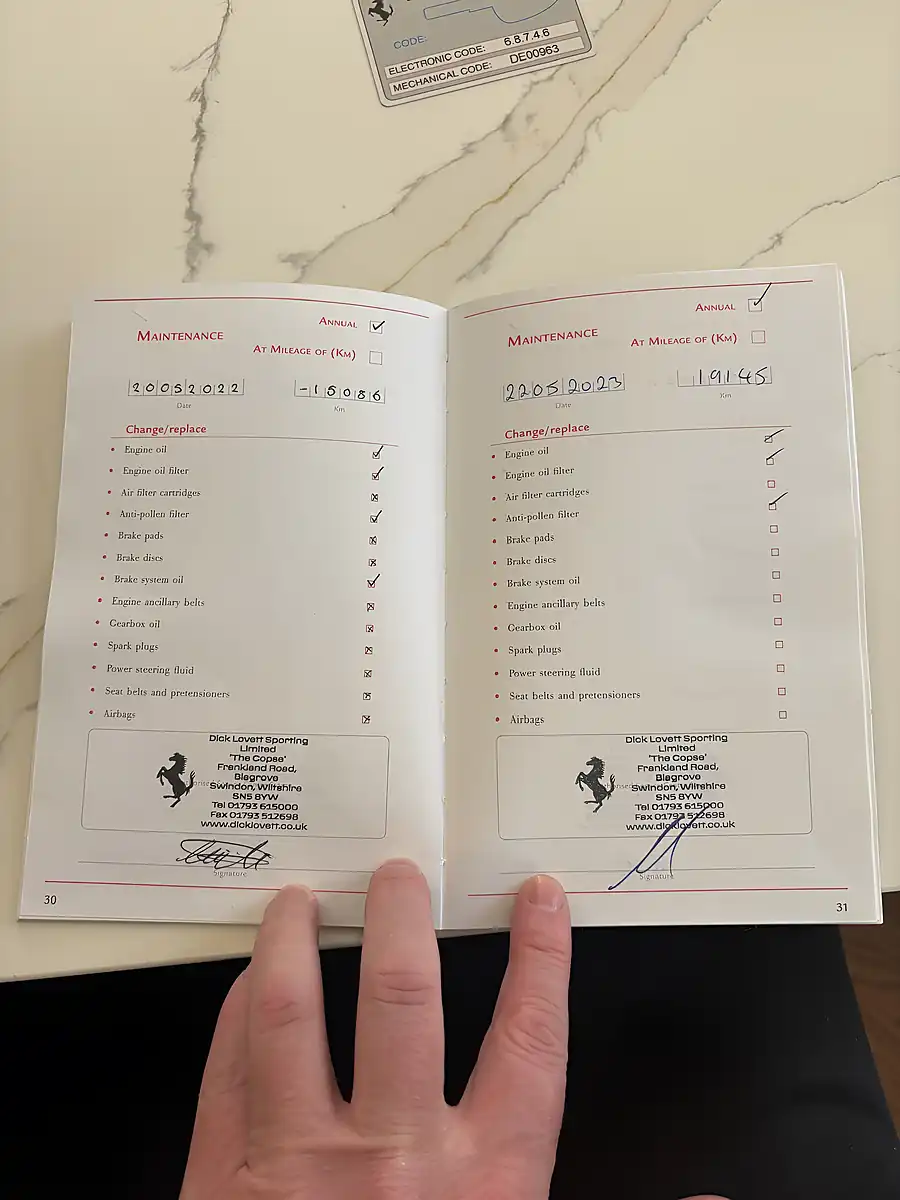 CODE:
ELECTRONIC CODE: 6.8.7.4.6
MECHANICAL CODE: DE00963
Annual
Maintenance
At Mileage of (Km)
20052022
-15086
Date
Km
Change/replace
Engine oil
Engine oil filter
Air filter cartridges
Anti-pollen filter
Brake pads
Brake discs
Brake system oil
Engine ancillary belts
Gearbox oil
Spark plugs
Power steering fluid
Seat belts and pretensioners
Airbags
Dick Lovett Sporting
Limited
'The Copse'
Frankland Road,
Blagrove
Swindon, Wiltshire
SN5 8YW
Tel 01793 615000
Fax 01793 512698
www.dicklovett.co.uk
Signature
30
Annual
Maintenance
At Mileage of (Km)
22052023
19145
Date
Km
Change/replace
Engine oil
Engine oil filter
Air filter cartridges
Anti-pollen filter
Brake pads
Brake discs
Brake system oil
Engine ancillary belts
Gearbox oil
Spark plugs
Power steering fluid
Seat belts and pretensioners
Airbags
Dick Lovett Sporting
Limited
'The Copse'
Frankland Road,
Blagrove
Swindon, Wiltshire
SN5 8YW
Tel 01793 615000
Fax 01793 512698
www.dicklovett.co.uk
Signature
31